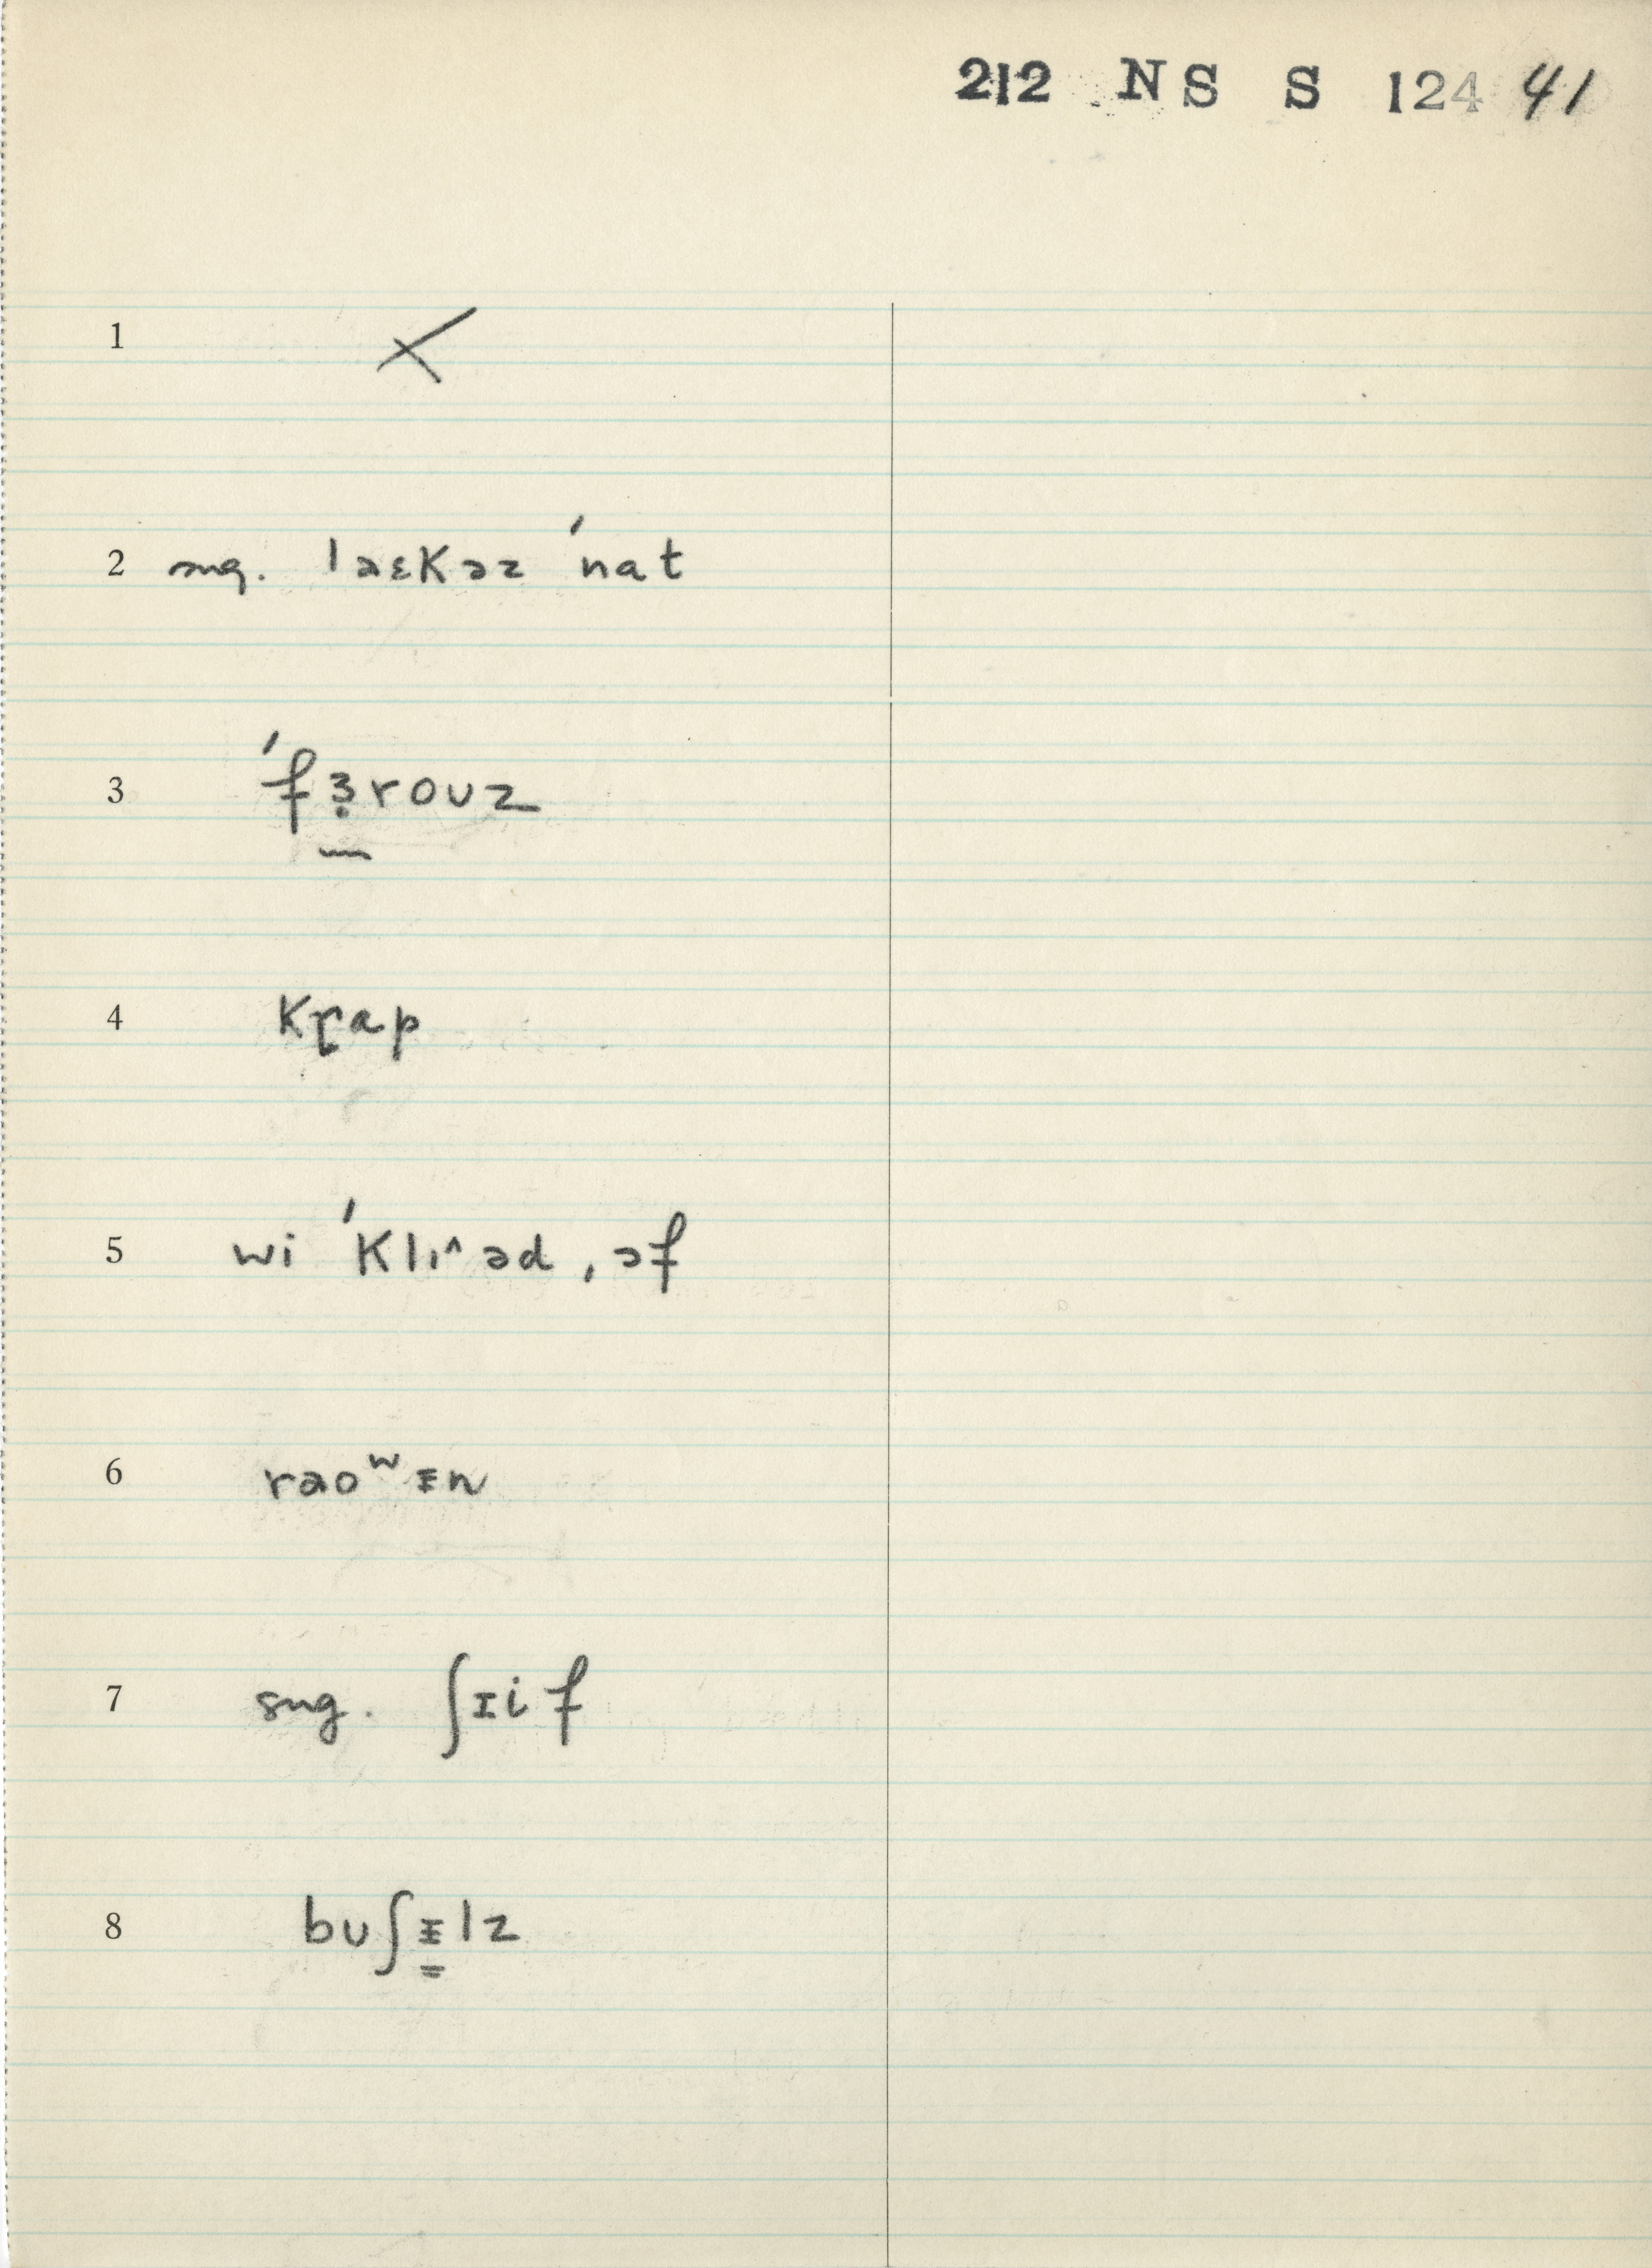 212 NS S 124 41
1 ×
2 sug. laɛkəz ˈnat
3 ˈfɜ̣rouz
4 kɽap
5 wi ˈklɪ^əd ˌəf
6 raoʷᵻn
7 sug. ʃɪif
8 buʃᵻlz